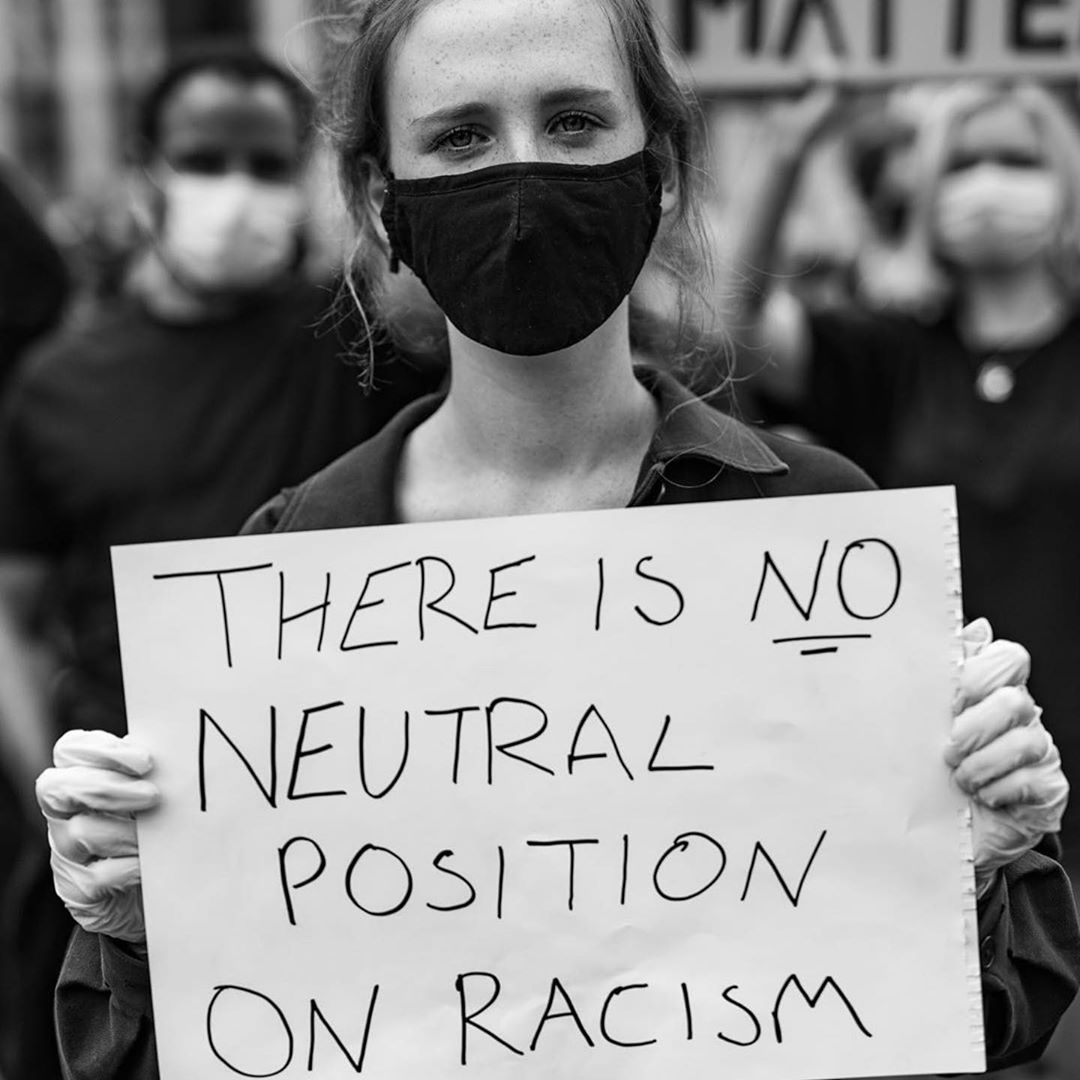 MATTE
THERE IS NO
NEUTRAL
POSITION
ON RACISM